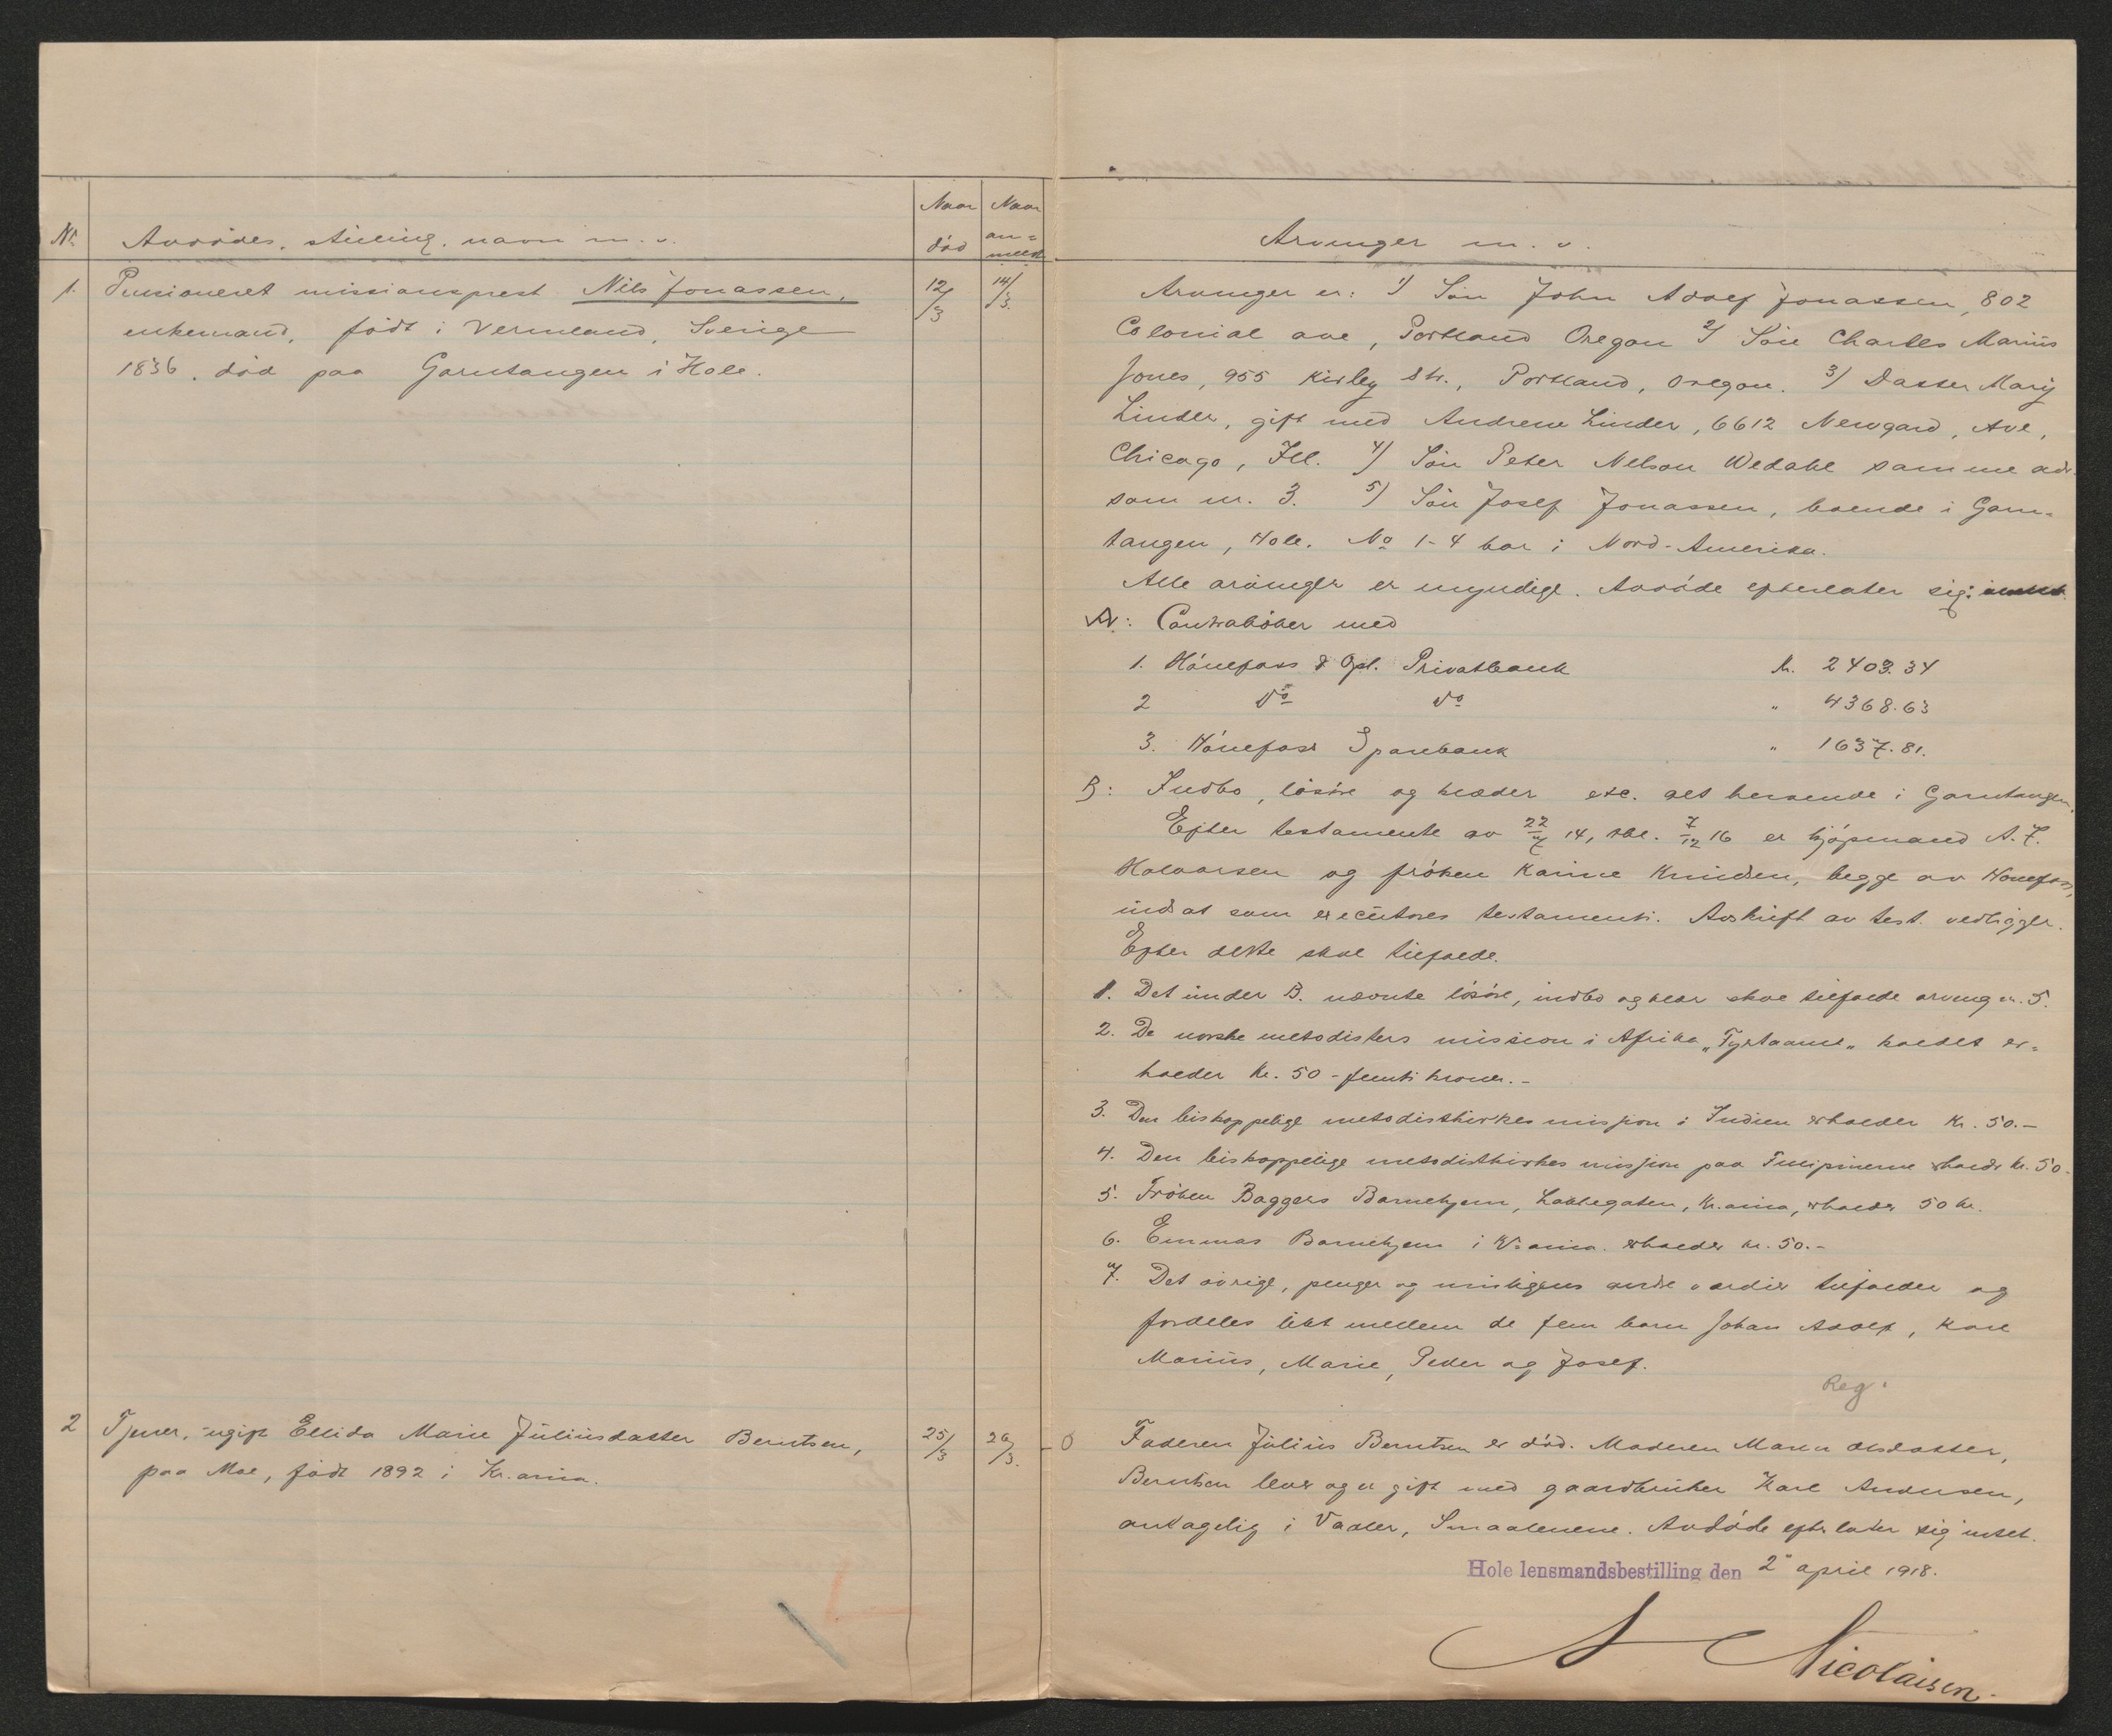 Nr.
Avdödes, stilling, navn m. v.
Naar död
Naar an=meldt
1. Pensioneret missionsprest Nils Jonassen,
enkemand, födt i Vermland, Sverige
1836. död paa Garntangen i Hole.
12/3
14/3.
2 Tjener, ugift Ellida Marie Júliúsdatter Berntsen,
paa Moe, födt 1892 i Kr.ania.
25/3
26/3.
Arvinger m. v.
Arvinger er: 1) Sön John Adolf Jonassen, 802
Colonial ave, Portland Oregon 2) Sön Charles Mariús
Jones, 955 Kirley Str., Portland, Oregon. 3) Datter Mary
Linder, gift med Andrew Linder, 6612 Newgard, Ave,
Chicago, Ill. 4) Sön Peter Nelson Wedahl samme adr.
som nr. 3. 5) Sön Josef Jonassen, boende i Garn=
tangen, Hole. No 1-4 bor i Nord-Amerika.
Alle arvinger er myndige. Avdöde efterlater sig:
A: Contraböker med
1. Hönefoss & Opl. Privatbank kr. 2403.34
2 do do " 4368.63
3. Hönefoss Sparebank " 1637.81.
B: Indbo, lösöre og klæder etc. alt beroende i Garntangen.
Efter testamente av 22/4 14, tbl. 7/12 16 er kjöpmand A. F.
Halvorsen og fröken Karine Knúdsen, begge av Hönefoss,
indsat som execútores testamenti. Avskrift av test. vedligger.
Efter dette skal tilfalde.
1. Det únder B. nævnte lösöre, indbo og klær skal tilfalde arving nr. 5.
2. De norske metodisters mission i Afrika, kaldet er=
holder Kr. 50 - femti kroner. -
3. Den biskoppelige metodistkirkes mission i Indien erholder Kr. 50. -
4. Den biskoppelige metodistkirkes mission paa Fillipinerne erholdr kr. 50.
5. Fröken Baggers Barnehjem, Kr.ania, erholder 50 kr.
6. Emmas Barnehjem i Kr.ania. erholder kr. 50. -
7. Det övrige, penger og múligens andre værdier tilfalder og
fordeles likt mellem de fem barn Johan Adolf, Karl
Mariús, Marie, Peder og Josef.
Reg.
0 Faderen Júliús Berntsen er död. Moderen Maren Olsdatter,
Berntsen lever og er gift med gaardbrúker Karl Andersen,
antagelig i Vaaler, Smaalenene. Avdöde efterlater sig intet.
Hole lensmandsbestilling den 2" april 1918.
A Nicolaisen.